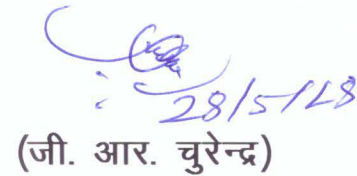 28/5/18
(जी. आर. चुरेन्द्र)